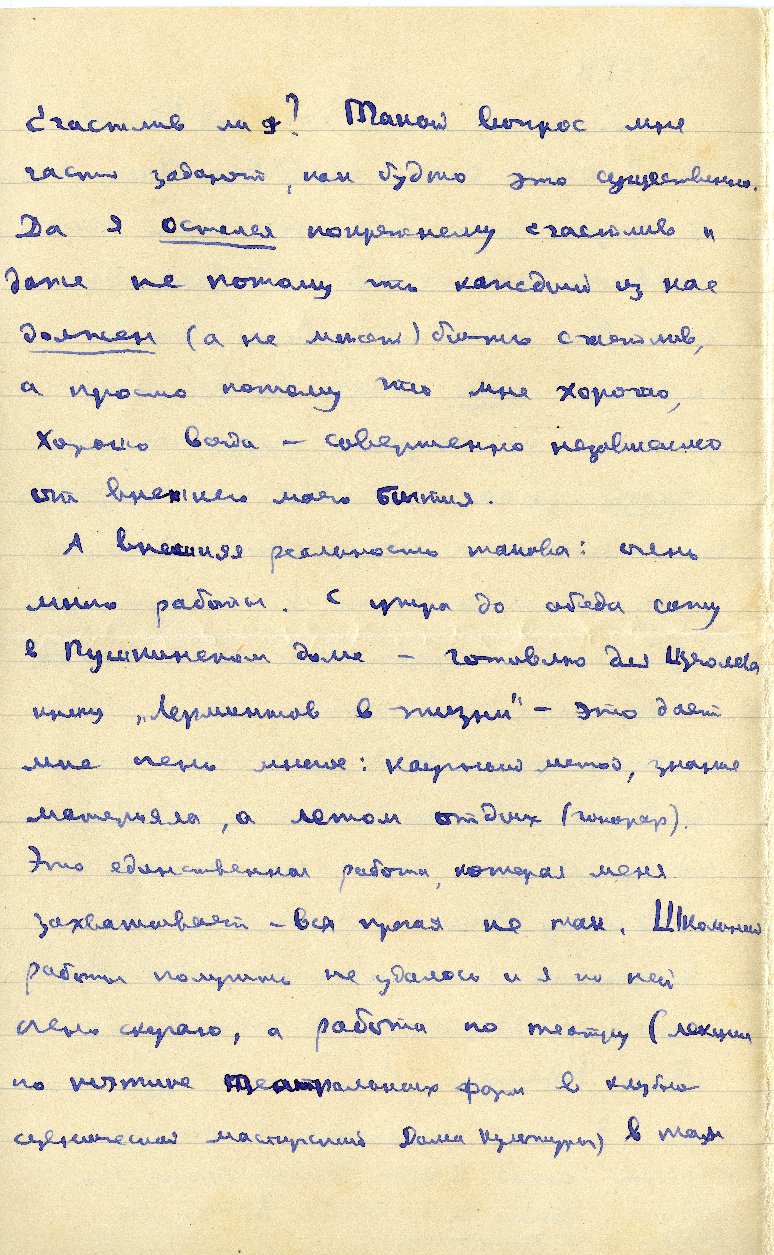 Счастлив ли я? Такой вопрос мне
часто задают, как будто это существенно.
Да я остался попрежнему счастлив и
даже не потому что каждый из нас
должен (а не может) быть счастлив,
а просто потому что мне хорошо,
хорошо всегда – совершенно независимо
от внешнего моего бытия.
А внешняя реальность такова: очень
много работы. С утра до обеда сижу
в Пушкинском доме – готовлю для
книгу „Лермонтов в жизни" – это дает
мне очень многое: научный метод, знание
матерьяла, а летом отдых (гонорар).
Это единственная работа, которая меня
захватывает – вся прочая не так. Школьной
работы получить не удалось и я по ней
очень скучаю, а работа по театру (лекции
по поэтике театральных форм в клубно
сценической мастерской Дома Культуры) в таких